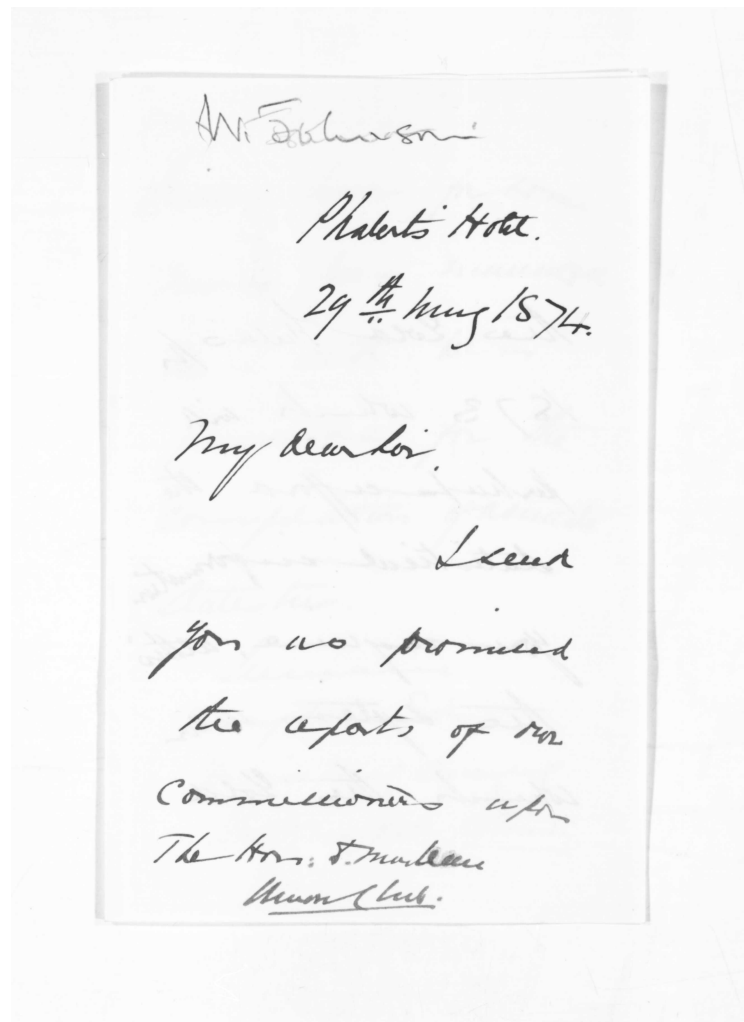 Johnson
Hotel.
29th May 1874.
My dear Sir.
I send
you as promised
the reports of our
Commissioners upon
The Hon: D. McLean
Union Club.